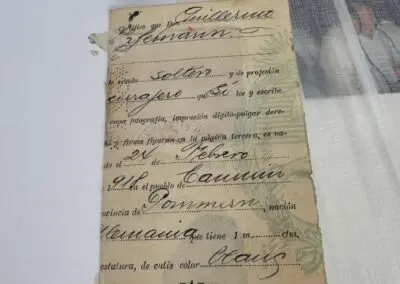 Certifico que Don Guillermo
Hemann
de estado solter y de profesión
cerrajero que Sí lee y escribe
cuya fotografía, impresión dígito-pulgar dere-
cha y firma figuran en la página tercera, es na-
cido el 24 de Febrero
1918 en el pueblo de Cammin
provincia de Pommern, nación
Alemania que tiene 1 m. ctm.
estatura, de cutis color